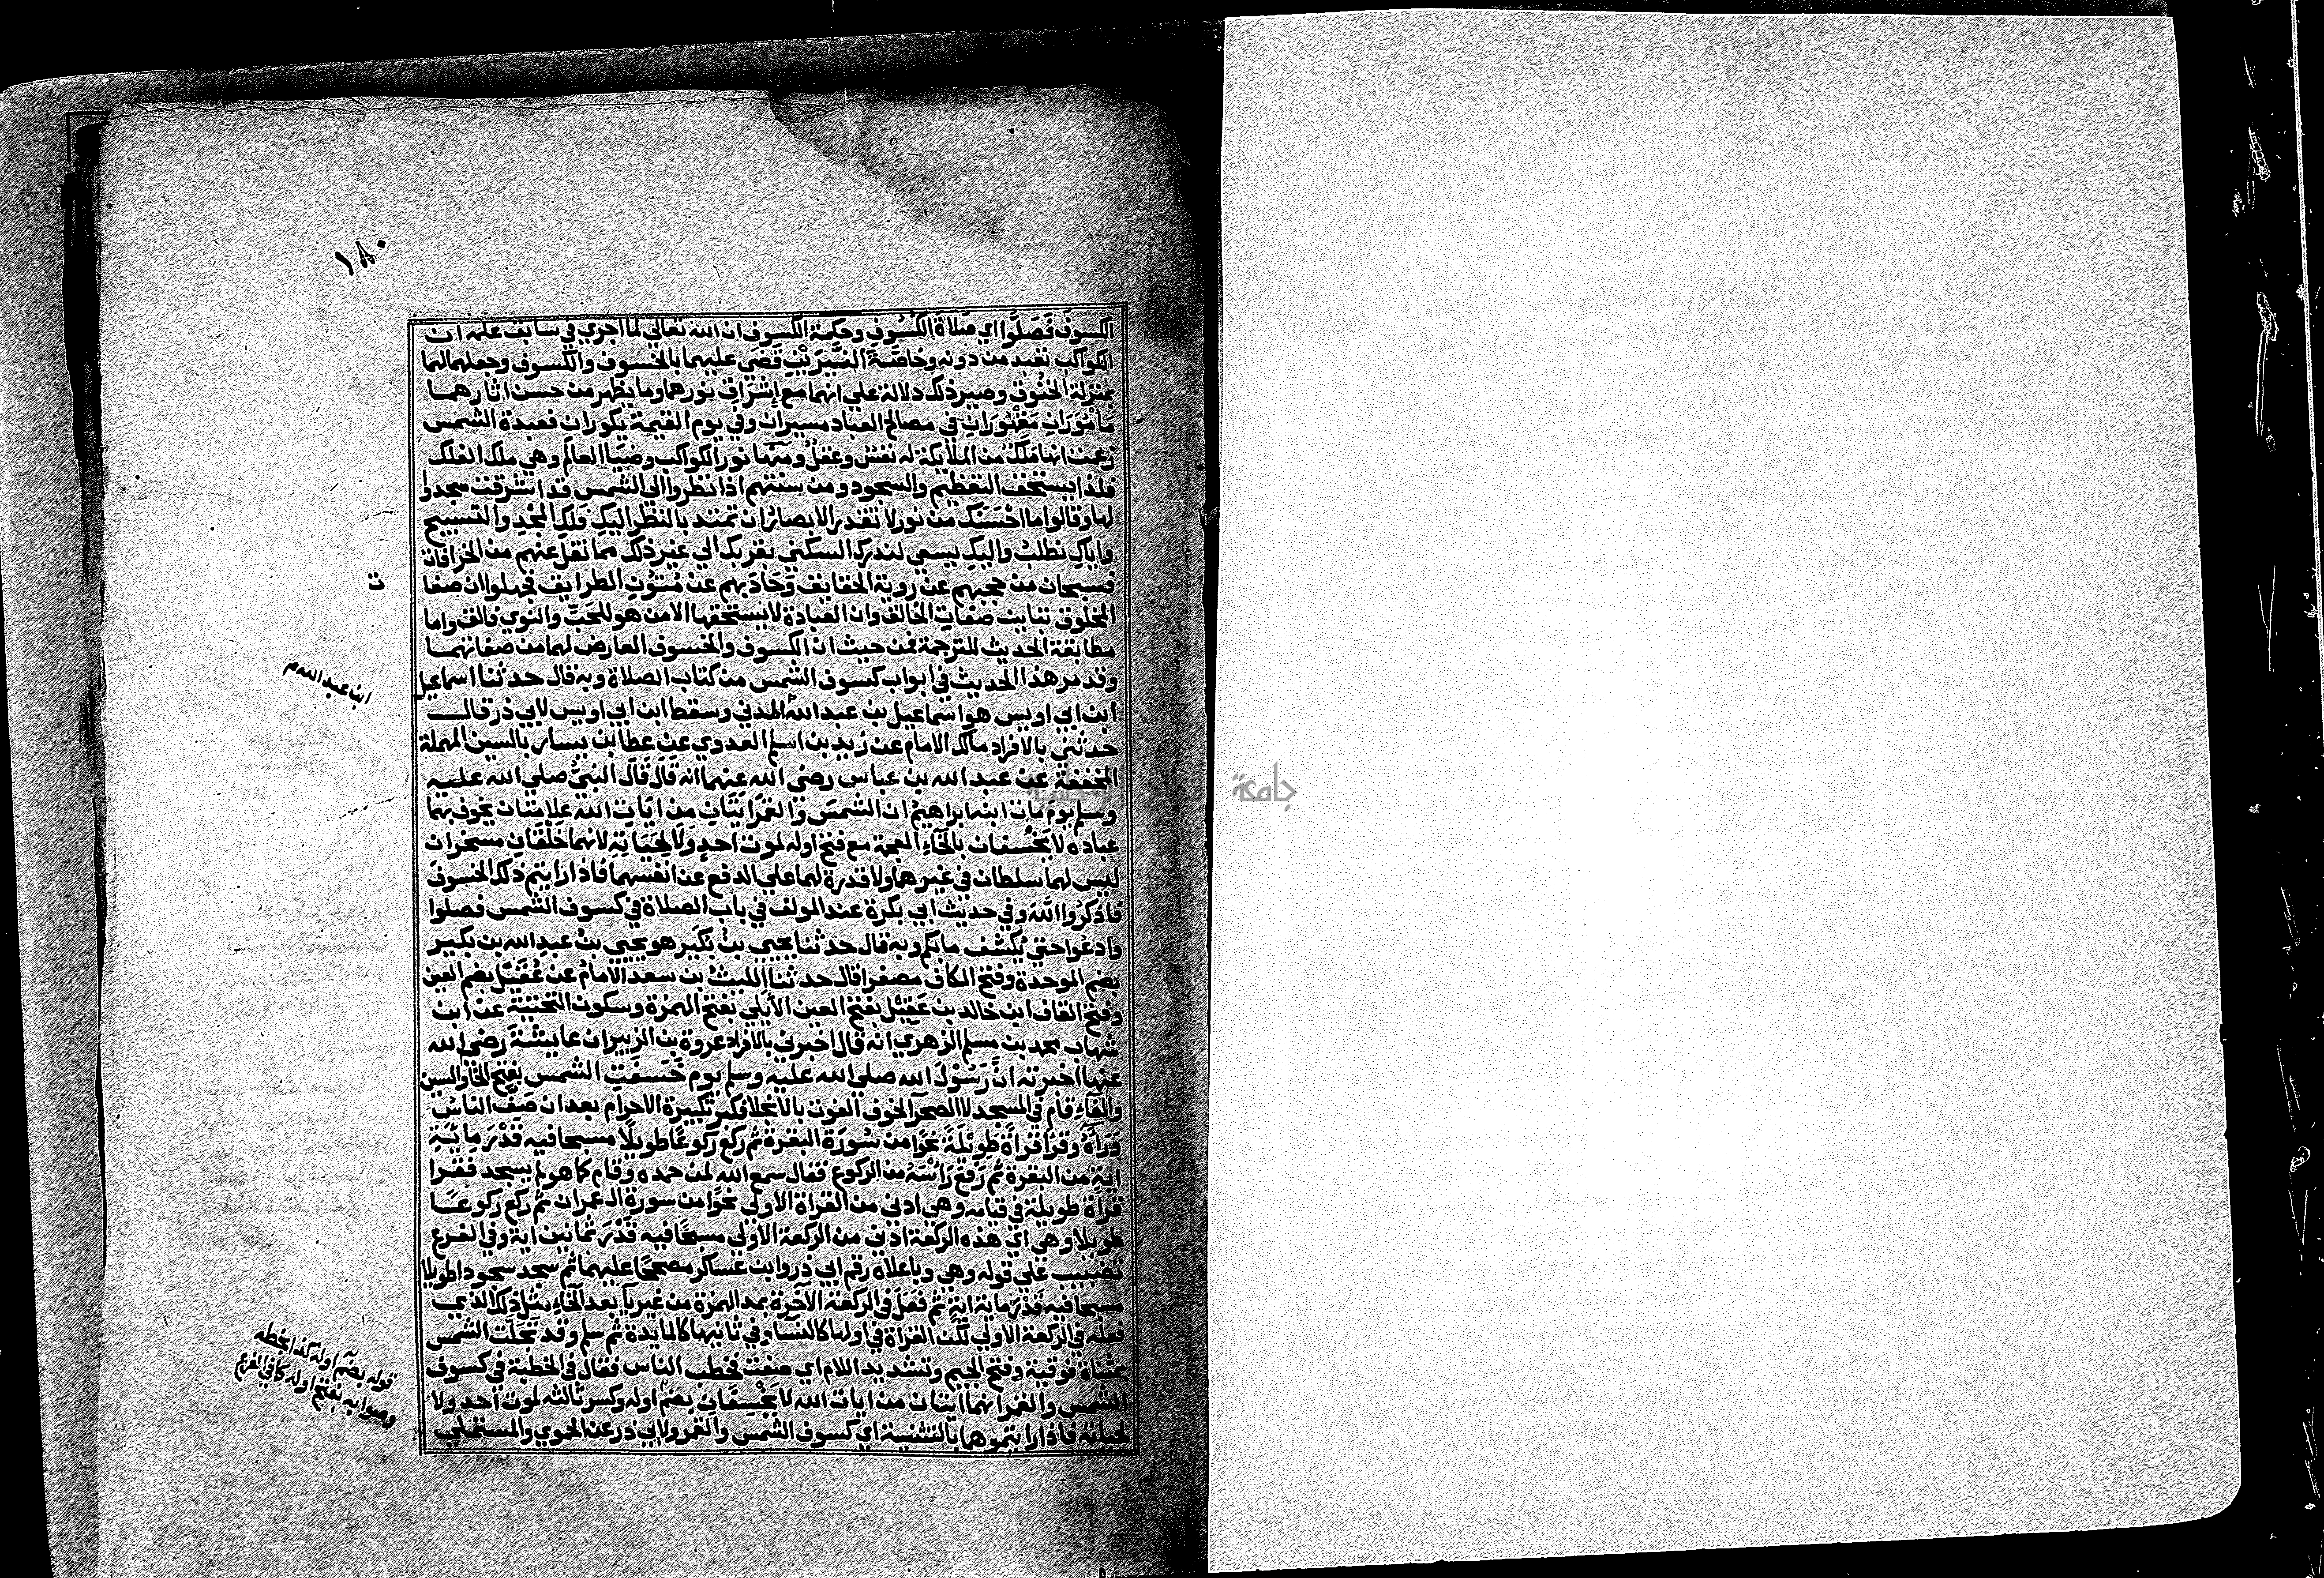 ١٨٠
الكسوف فَصَلُّوا اي صلاة الكسوف وحكمة الكسوف ان الله تعالي لما اجري في سابق علمه ان
الكواكب تعبد من دونه وخاصَّة النَّيِّرَيْنِ قَضَي عليهما بالخسوف والكسوف وجعلهما لهما
بمنزلة الحتوف وصير ذلك دلالة علي انهما مع إشراق نورهما وما يظهر من حسن اثارهما
مأمُورَانِ مَقْهُورَانِ في مصالح العباد مسيران وفي يوم القيمة يكوران فعبدة الشمس
زعمت انها مَلَك من الملايكة له نفس وعقل ومنها نور الكواكب وضيا العالم وهي ملك الفلك
فلذا يستحق التعظيم والسجود ومن سنتهم اذا نظروا الي الشمس قد اشرقت سجدوا
لها وقالوا ما احْسَنَك من نور لا تقدر الابصار ان تمتد بالنظر اليك فلك المجد والتسبيح
واياك نطلب واليك نسعي لندرك السكني بقربك الي غير ذلك مما نقل عنهم من الخرافات
فسبحان من حجبهم عن روية الحقايق وَحَادَ بهم عن الطرايق فجهلوا ان صفا
ت
المخلوق تباين صفات الخالق وان العبادة لا يستحقها الا من هو للحَبِّ والنوي فالق واما
مطابقة الحديث للترجمة فمن حيث ان الكسوف والخسوف العارض لهما من صفاتهما
وقد مر هذا الحديث في ابواب كسوف الشمس من كتاب الصلاة وبه قال حدثنا اسماعيل
ابن ابي اويس هو اسماعيل بن عبد الله المدني وسقط ابن ابي اويس لابي ذر قال
ابن عبد الله م
حدثني بالافراد مالك الامام عن زيد بن اسلم العدوي عن عطا بن يسار بالسين المهملة
المخففة عن عبد الله بن عباس رضي الله عنهما انه قال قَالَ النبيُّ صلي الله عليه
وسلم يوم مات ابنه ابراهيم ان الشمسَ والقمرَ ايَتَانِ مِن ايَاتِ الله علامتان يخوف بهما
عباده لا يَخْسِفان بالخَاءِ المعجمة مع فتح اوله لموت احدٍ ولا لِحَيَاتِهِ لانهما خلقان مسخران
ليس لهما سلطان في غيرهما ولا قدرة لهما علي الدفع عن انفسهما فاذا رايتم ذلك الخسوف
فاذكرُوا اللّهَ وفي حديث ابي بكرة عند المولف في باب الصلاة في كسوف الشمس فصلوا
وادعوا حتي يُكْشَف ما بكم وبه قال حدثنا يحيي بنُ بُكَير هو يحيي بن عبد الله بن بكير
بضم الموحدة وفتح الكاف مصغرا قال حدثنا الليثُ بن سعد الامام عن عُقَيل بضم العين
وفتح القاف ابن خالد بن عَقِيل بفتح العين الأَيلي بفتح الهمزة وسكون التحتية عن ابن
شهاب محمد بن مسلم الزهري انه قال اخبرني بالافراد عروة بن الزبير ان عايشةَ رضي الله
عنها اخبرته انَّ رَسُوْلَ الله صلي الله عليه وسلم يوم خَسَفَتِ الشمس بفتح الخا والسين
والفَاءِ قام في المسجد لا الصحرآ لخوف الفوت بالانجلا فكبر تكبيرة الاحرام بعد ان صَفَّ الناسُ
وَرَاءَهُ وقرا قراةً طَوِيْلَةً نحوا من سُورَةِ البقرة ثم ركع ركوعًا طويلًا مسبحا فيه قَدْرَ مِائَةِ
ايةٍ من البقرة ثم رَفَعَ رَأْسَهُ من الركوع فقال سمع الله لمن حمده وقام كما هو لم يسجد فقرا
قراة طويلة في قيامه وهي ادني من القراة الاولي نحوًا من سورة ال عمران ثم ركع ركوعًا
طويلا وهي اي هذه الركعة ادني من الركعة الاولي مسبحًا فيه قَدْرَ ثمانين اية وفي الفرع
تضبيب علي قوله وهي وباعلاه رقم ابي ذر وابن عساكر مصححًا عليهما ثم سجد سجودا طويلا
مسبحا فيه قَدْرَ ماية ايةٍ ثم فَعَلَ في الركعة الآخرة بمد الهمزة من غير يآ بعد الخَاءِ مثل ذلك الذي
فعله في الركعة الاولي لكن القراة في اولها كالنسآ وفي ثانيها كالمايدة ثم سلم وقد تَجَلَّت الشمس
بمثناة فوقية وفتح الجيم وتشديد اللام اي صفت فخطب الناس فقال في الخطبة في كسوف
الشمس والقمر انهما ايتان من ايات الله لا يَخْسِفَان بضم اوله وكسر ثالثه لموت احد ولا
قوله بضم اوله كذا بخطه
وصوابه بفتح اوله كما في الفرع
لحياته فاذا رايتموهما بالتثنية اي كسوف الشمس والقمر ولابي ذر عن الحموي والمستملي